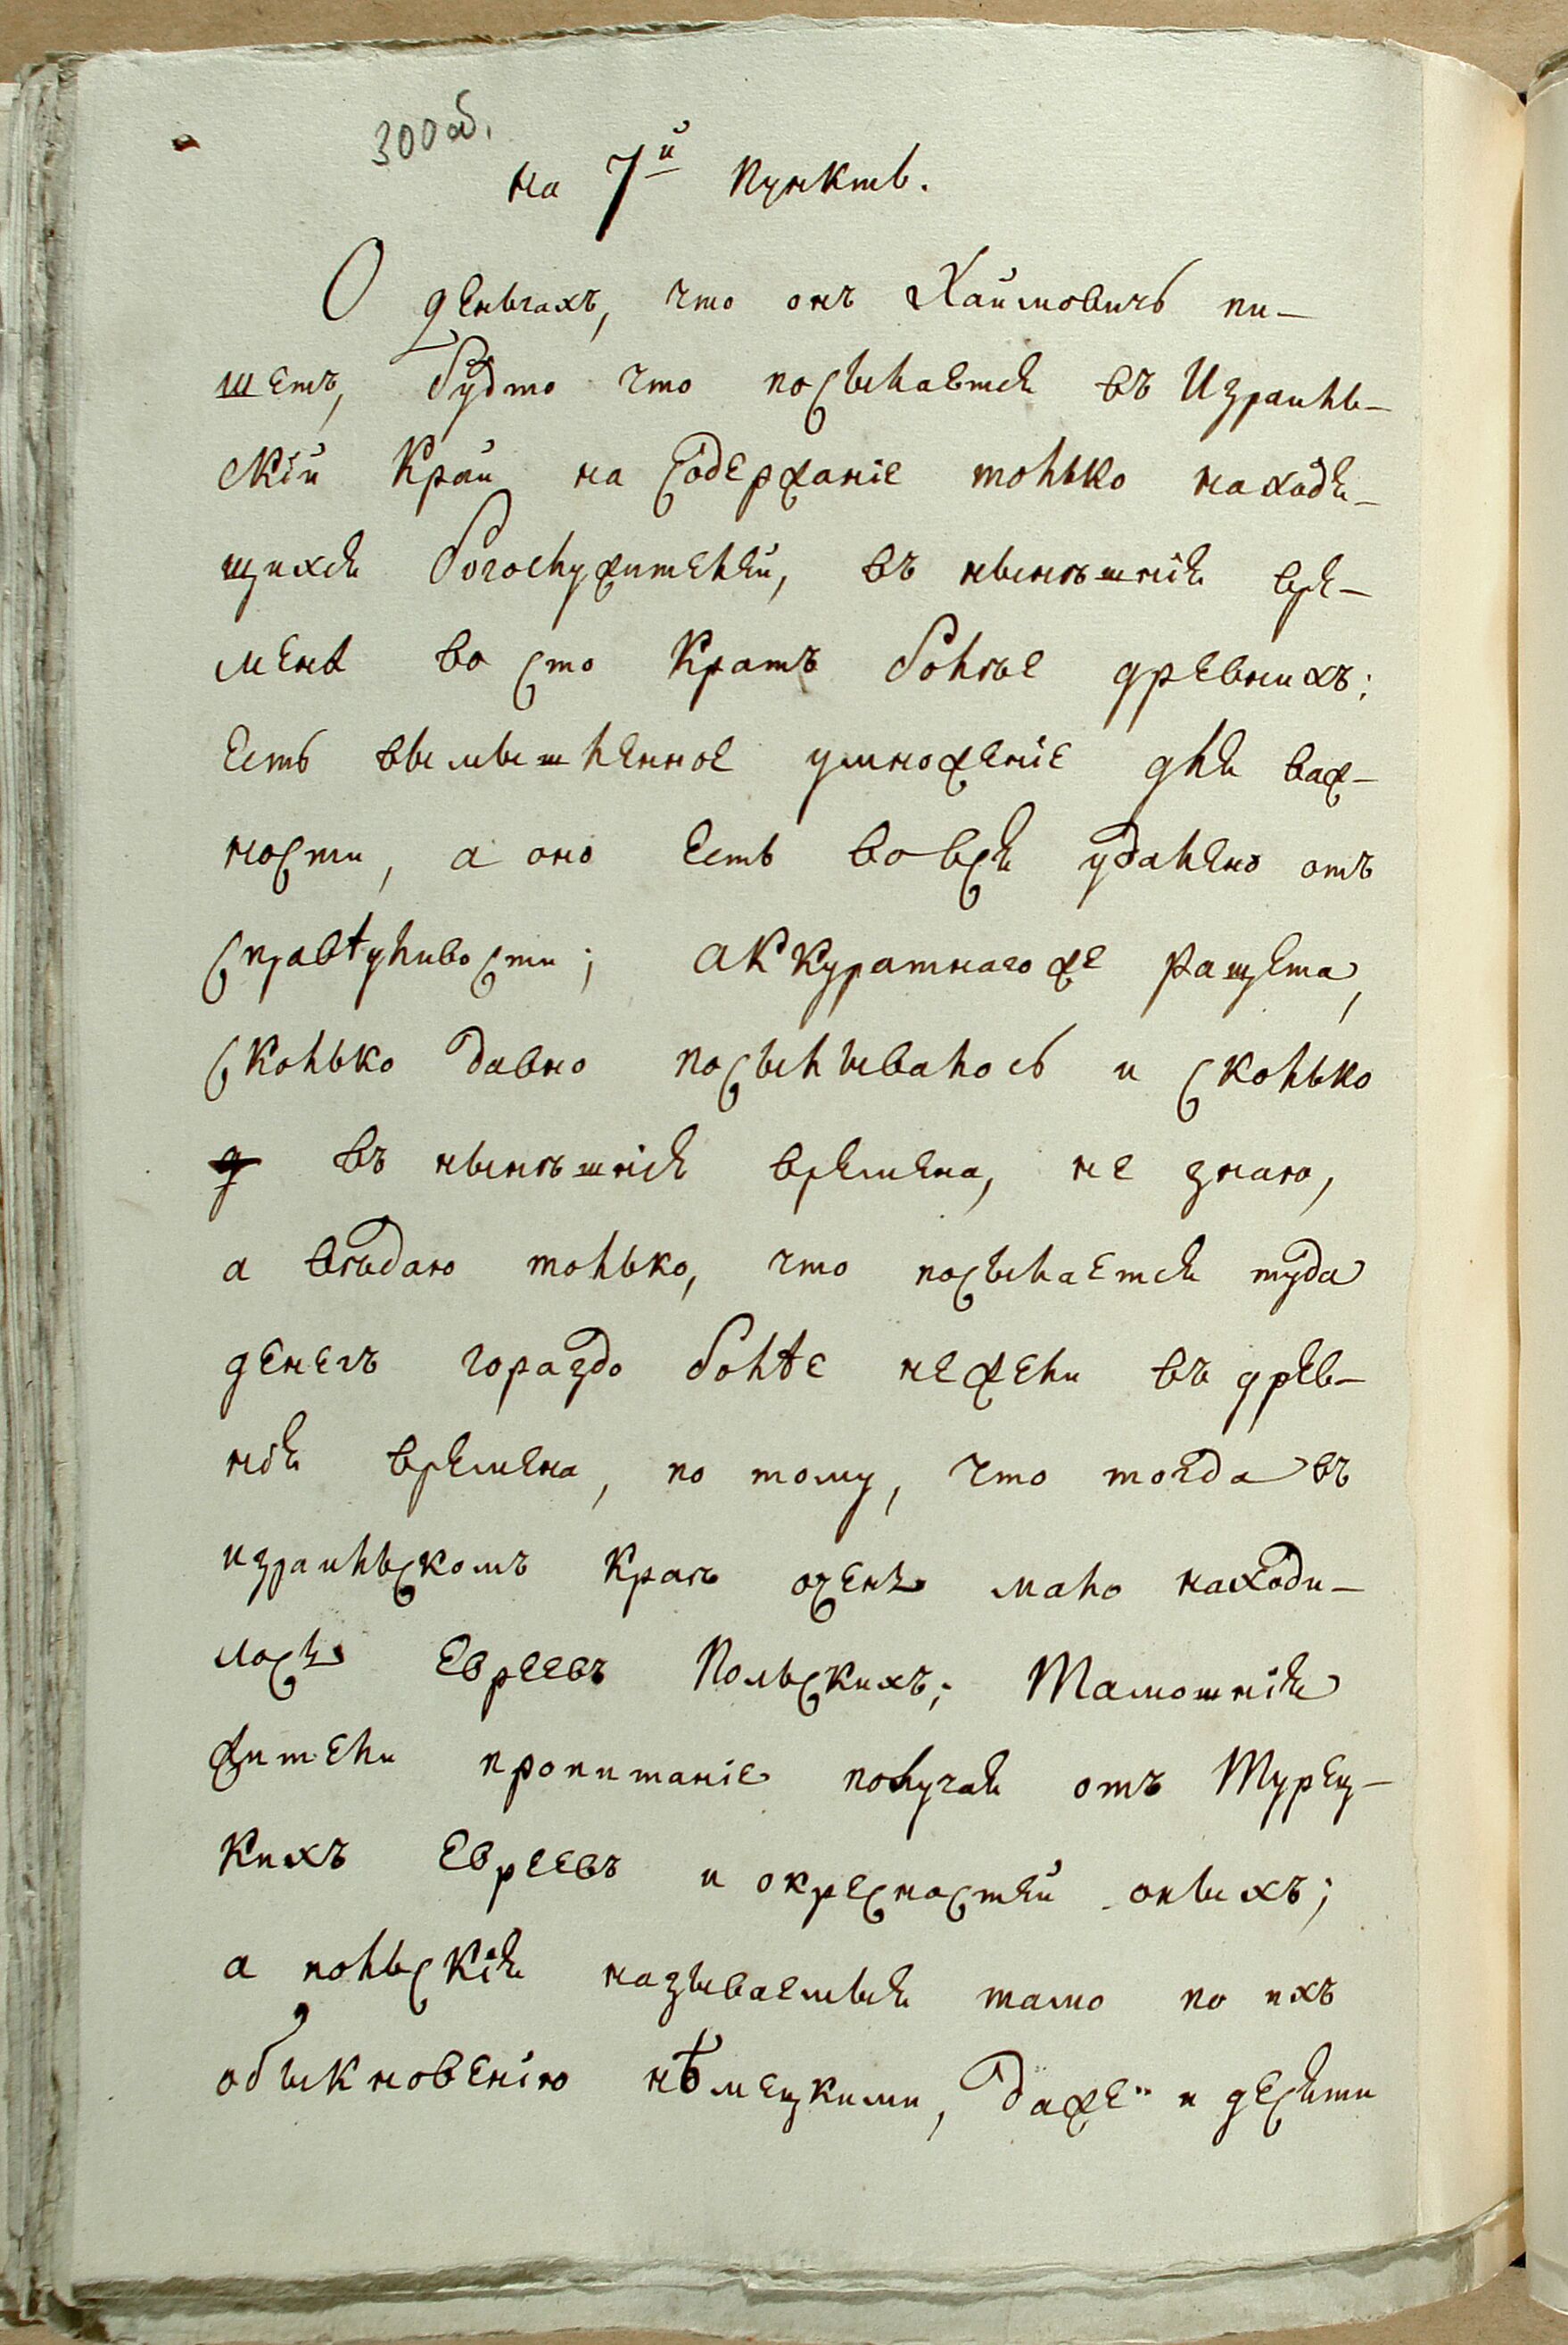 300 об.
на 7й пунктъ.
О деньгахъ, что онъ Хаймовичь пи-
шетъ, будто что посылается въ Израиль-
скій край на содержаніе только находя-
щихся богослужителей, въ нынѣшнія вре-
мена во сто кратъ болѣе древнихъ;
есть вымышленное умноженіе для важ-
ности, а оно есть вовся удалено отъ
справѣдливости; аккуратнагоже ращета,
сколько давно посылывалось и сколько
въ нынѣшнія времена, не знаю,
а вѣдаю только, что посылается туда
денегъ гораздо болѣе нежели въ древ-
нія времена, по тому, что тогда въ
израильскомъ краѣ очень мало находи-
лось евреевъ Польскихъ; Тамошнія
жители пропитаніе получая отъ Турец-
кихъ евреевъ и окресностей оныхъ;
а польскія называемыя тамо по ихъ
обыкновенію нѣмецкими, даже и десяти